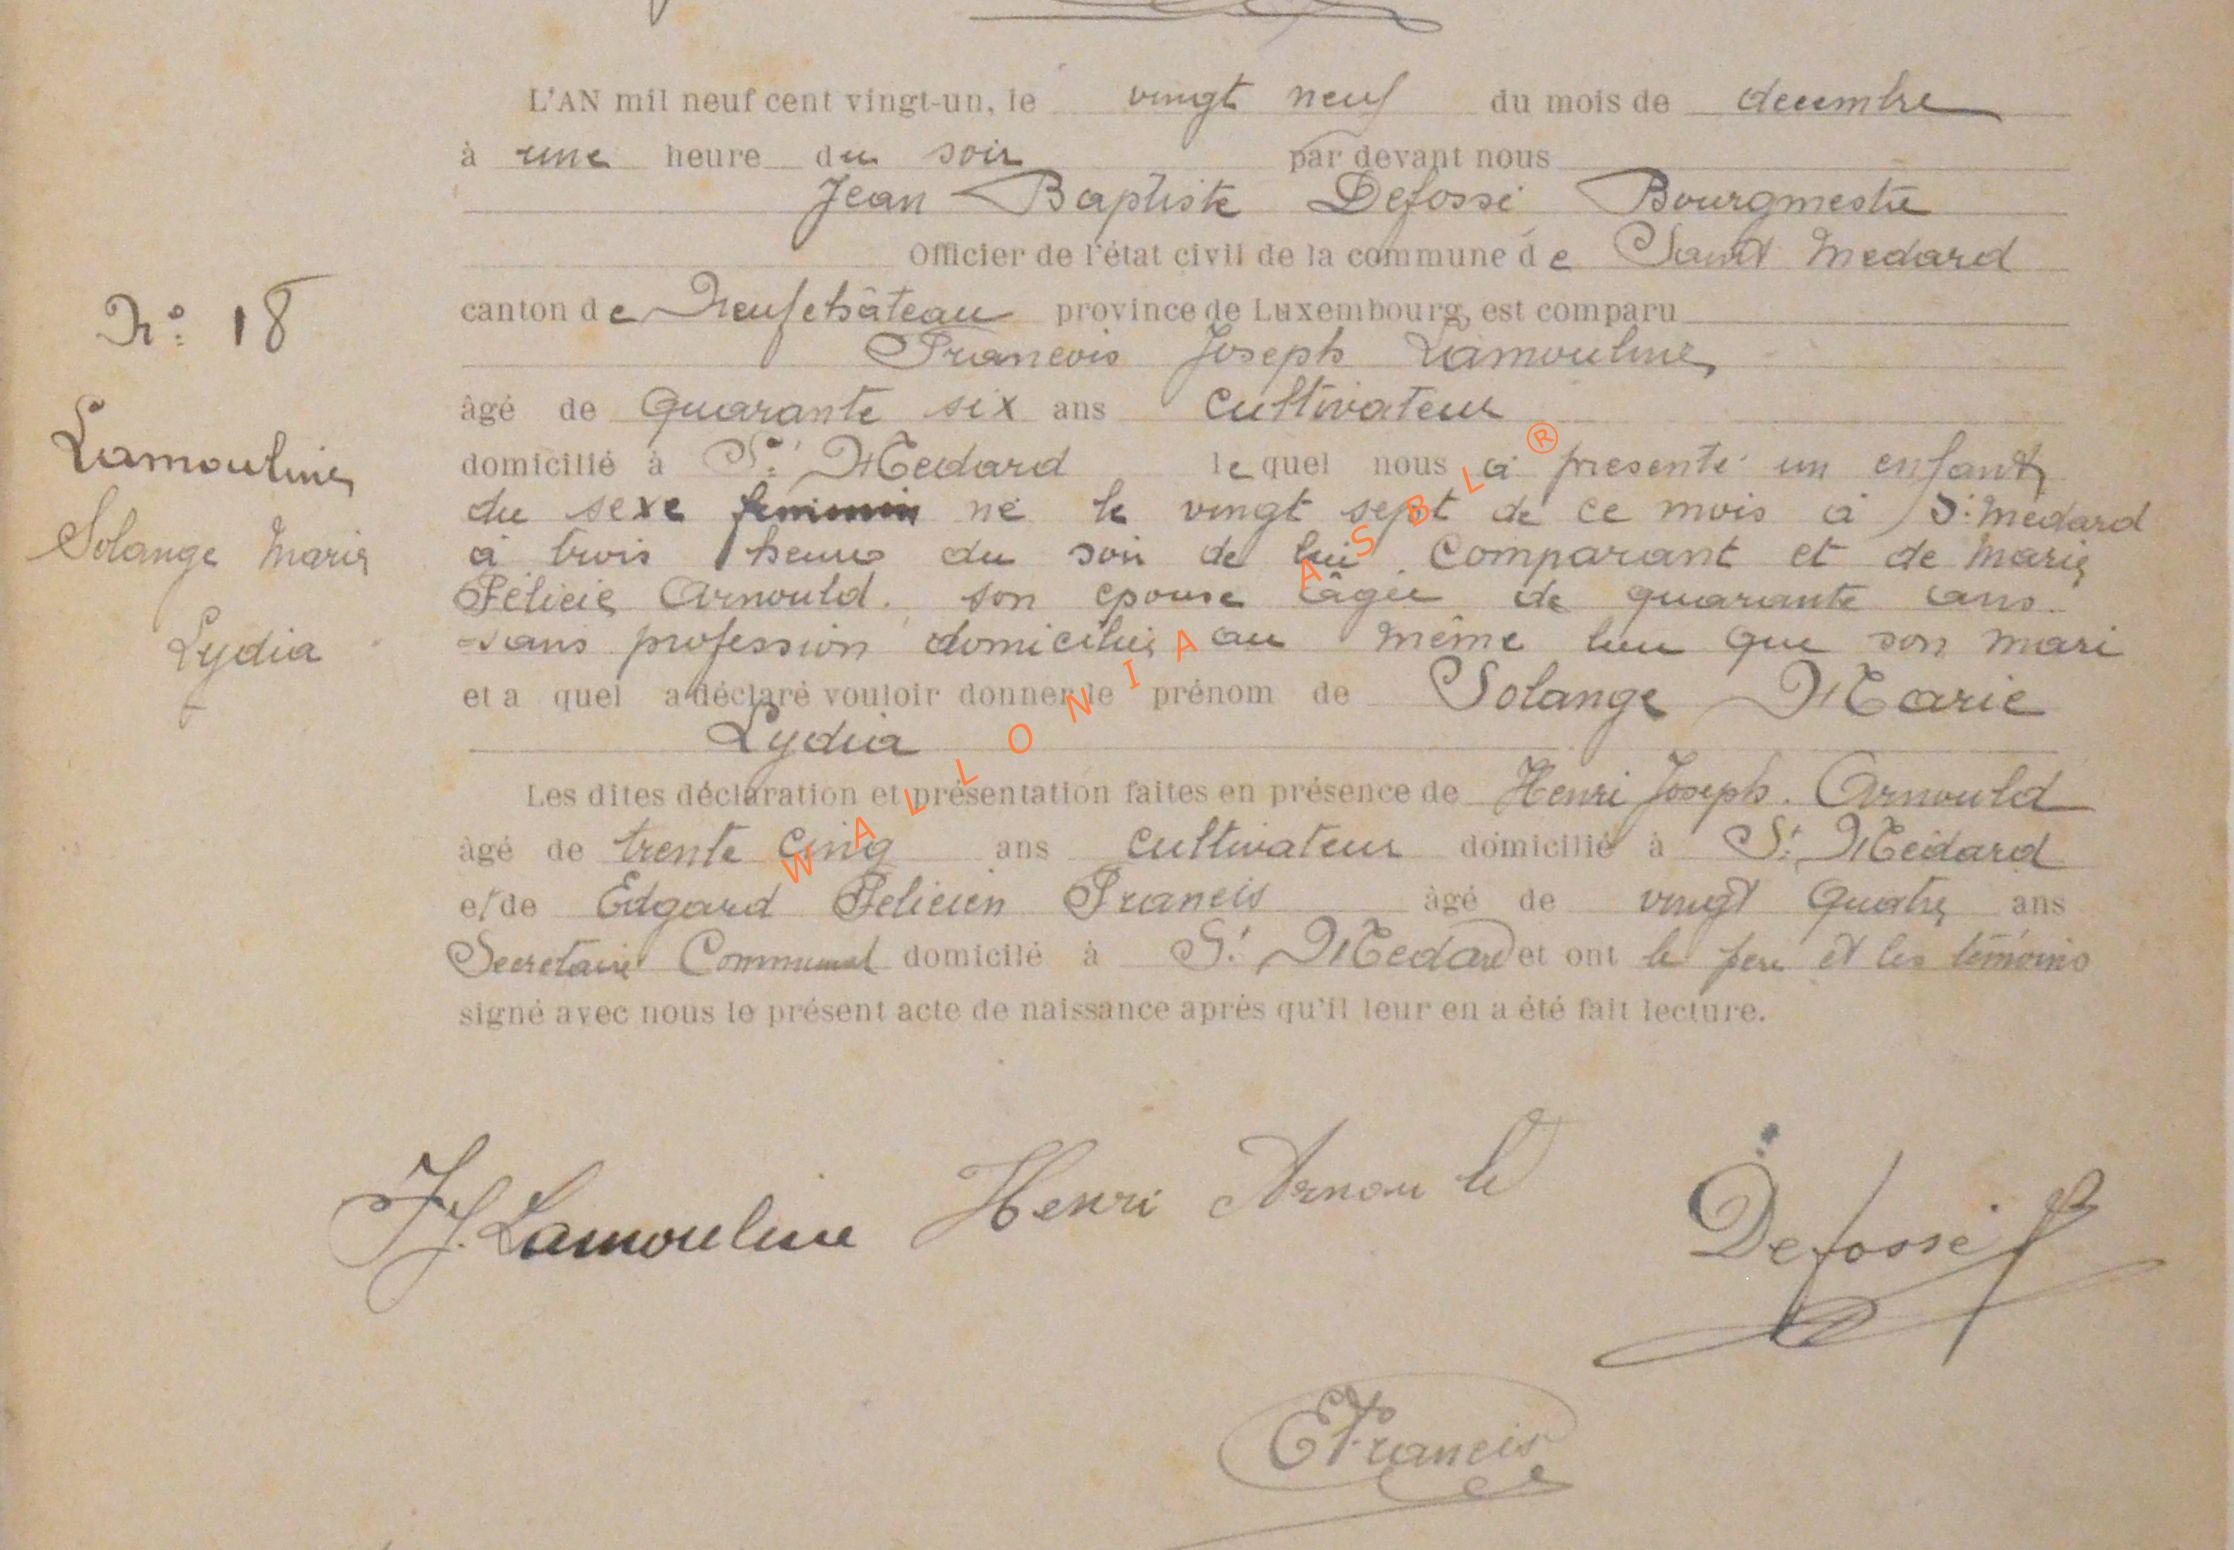 L'AN mil neuf cent vingt-un, le vingt neuf du mois de decembre
à une heure du soir par devant nous
Jean Baptiste Defossé Bourgmestre
Officier de l'état civil de la commune de Saint Medard
canton de Neufchâteau province de Luxembourg, est comparu
Francois Joseph Lamouline
âgé de quarante six ans cultivateur
domicilié à St Medard lequel nous a presenté un enfant
du sexe feminin né le vingt sept de ce mois à St medard
à trois heures du soir de lui comparant et de marie
Félicie Arnould. son epouse âgée de quarante ans
sans profession domiciliée au même lieu que son mari
et a quel a déclaré vouloir donner le prénom de Solange Marie
Lydia
Les dites déclaration et présentation faites en présence de Henri Joseph. Arnould
âgé de trente cinq ans cultivateur domicilié à St Médard
et de Edgard Felicien Francis âgé de vingt quatre ans
Secretaire Communal domicilé à St Medard et ont le pere et les témoins
signé avec nous le présent acte de naissance après qu'il leur en a été fait lecture.
No: 18
Lamouline
Solange Marie
Lydia
FJ. Lamouline Henri Arnould Defossé
EFrancis
WALLONIA ASBL ®